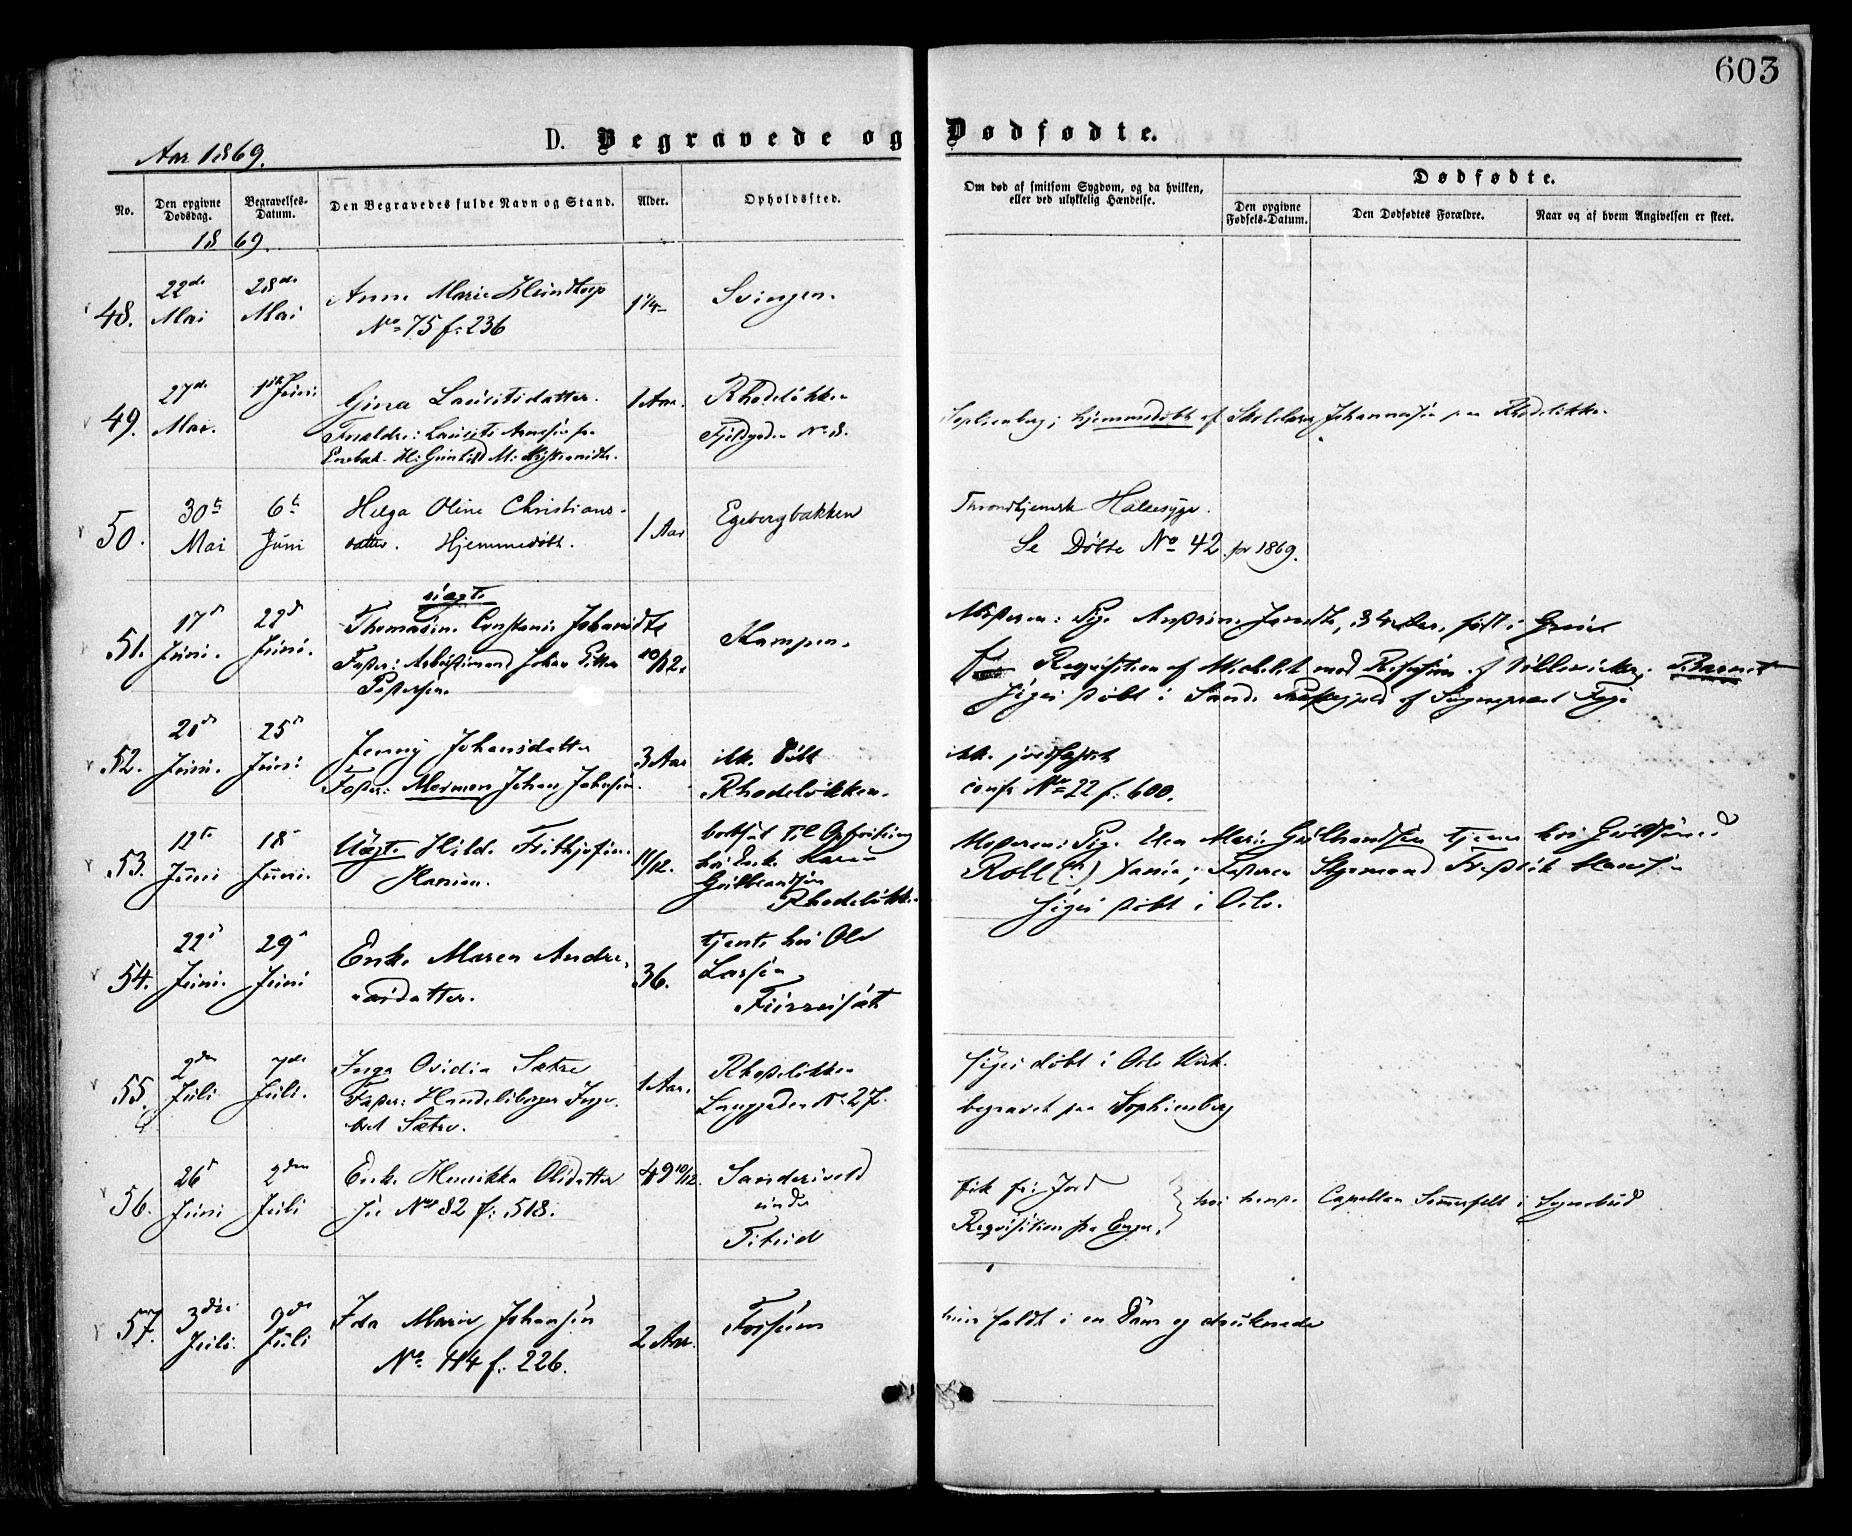 603
Aar 1869.
D. Begravede og Dødfødte.
No.
Den opgivne Dødsdag.
Begravelses-Datum.
Den Begravedes fulde Navn og Stand.
Alder.
Opholdssted.
Om død af smitsom Sygdom, og da hvilken, eller ved ulykkelig Hændelse.
Dødfødte.
Den opgivne Fødsels-Datum.
Den Dødfødtes Forældre.
Naar og af hvem Angivelsen er skeet.
1869.
48.
22de Mai
28de Mai
Anne Marie
No 75 f: 236
1 1/4
Svingen.
49.
27de Mai.
1ste Juni
Gina Lauritsdatter.
Forældre: Laurits
Enebak
1 Aar.
Rhodeløkken
No 8.
Sophienberg; hjemmedøbt af Skolelærer Johannesen paa Rhodeløkke.
50.
30te Mai
6te Juni
Helga Oline Christians-
datter. Hjemmedøbt.
1 Aar
Egebergbakken
Throndhjemsk Halssyge.
Se Døbte No 42 for 1869.
51.
17de Juni.
22de Juni.
uægte
Thomasine Constance
Fader: Arbeidsmand Johan Petter
Pedersen.
10/12.
Kampen.
Moderen: Pige 34 Aar, født i
Requisition af Michelet med
døbt i Sande Præstegjeld af Sognepræst
52.
20de Juni.
25de Juni
Jenny Johansdatter
Fader: Mormon Johan Johnsen.
3 Aar
ikke døbt
Rhodeløkken.
ikke jordfæstet
confr No 22 f: 600.
53.
12te Juni
18de Juni.
Uægte Hilda Frithjofine
11/12.
bortsat til Opfostring
hos Enke Karen
Gulbrandsen
Rhodeløkke.
Moderen: Pige Elen Marie Gulbrandsen tjener hos
Roll Xania; Faderen Styrmand Fredrik Hansen
siges døbt i Oslo.
54.
22de Juni.
29de Juni
Enke Maren Andre-
asdatter.
36.
tjente hos Ole
Larsen
55.
2den Juli
7de Juli.
Inga Ovidia Sætre
Fader: Handelsborger Inge-
bret Sætre.
1 Aar.
Rhodeløkken
Langgaden No 27.
siges døbt i Oslo Kirk.
begravet paa Sophienberg
56.
26de Juni
2den Juli
Enke Henrikke Olsdatter
No 82 f: 518.
49 10/12.
under
fik fri Jord
Requisition fra Enger,
hos henpr Capellan Sommerfelt i Sognebud
57.
3die Juli.
9de Juli
Ida Marie Johansen
No 114 f: 226.
2 Aar.
hun faldt i en Dam og druknede